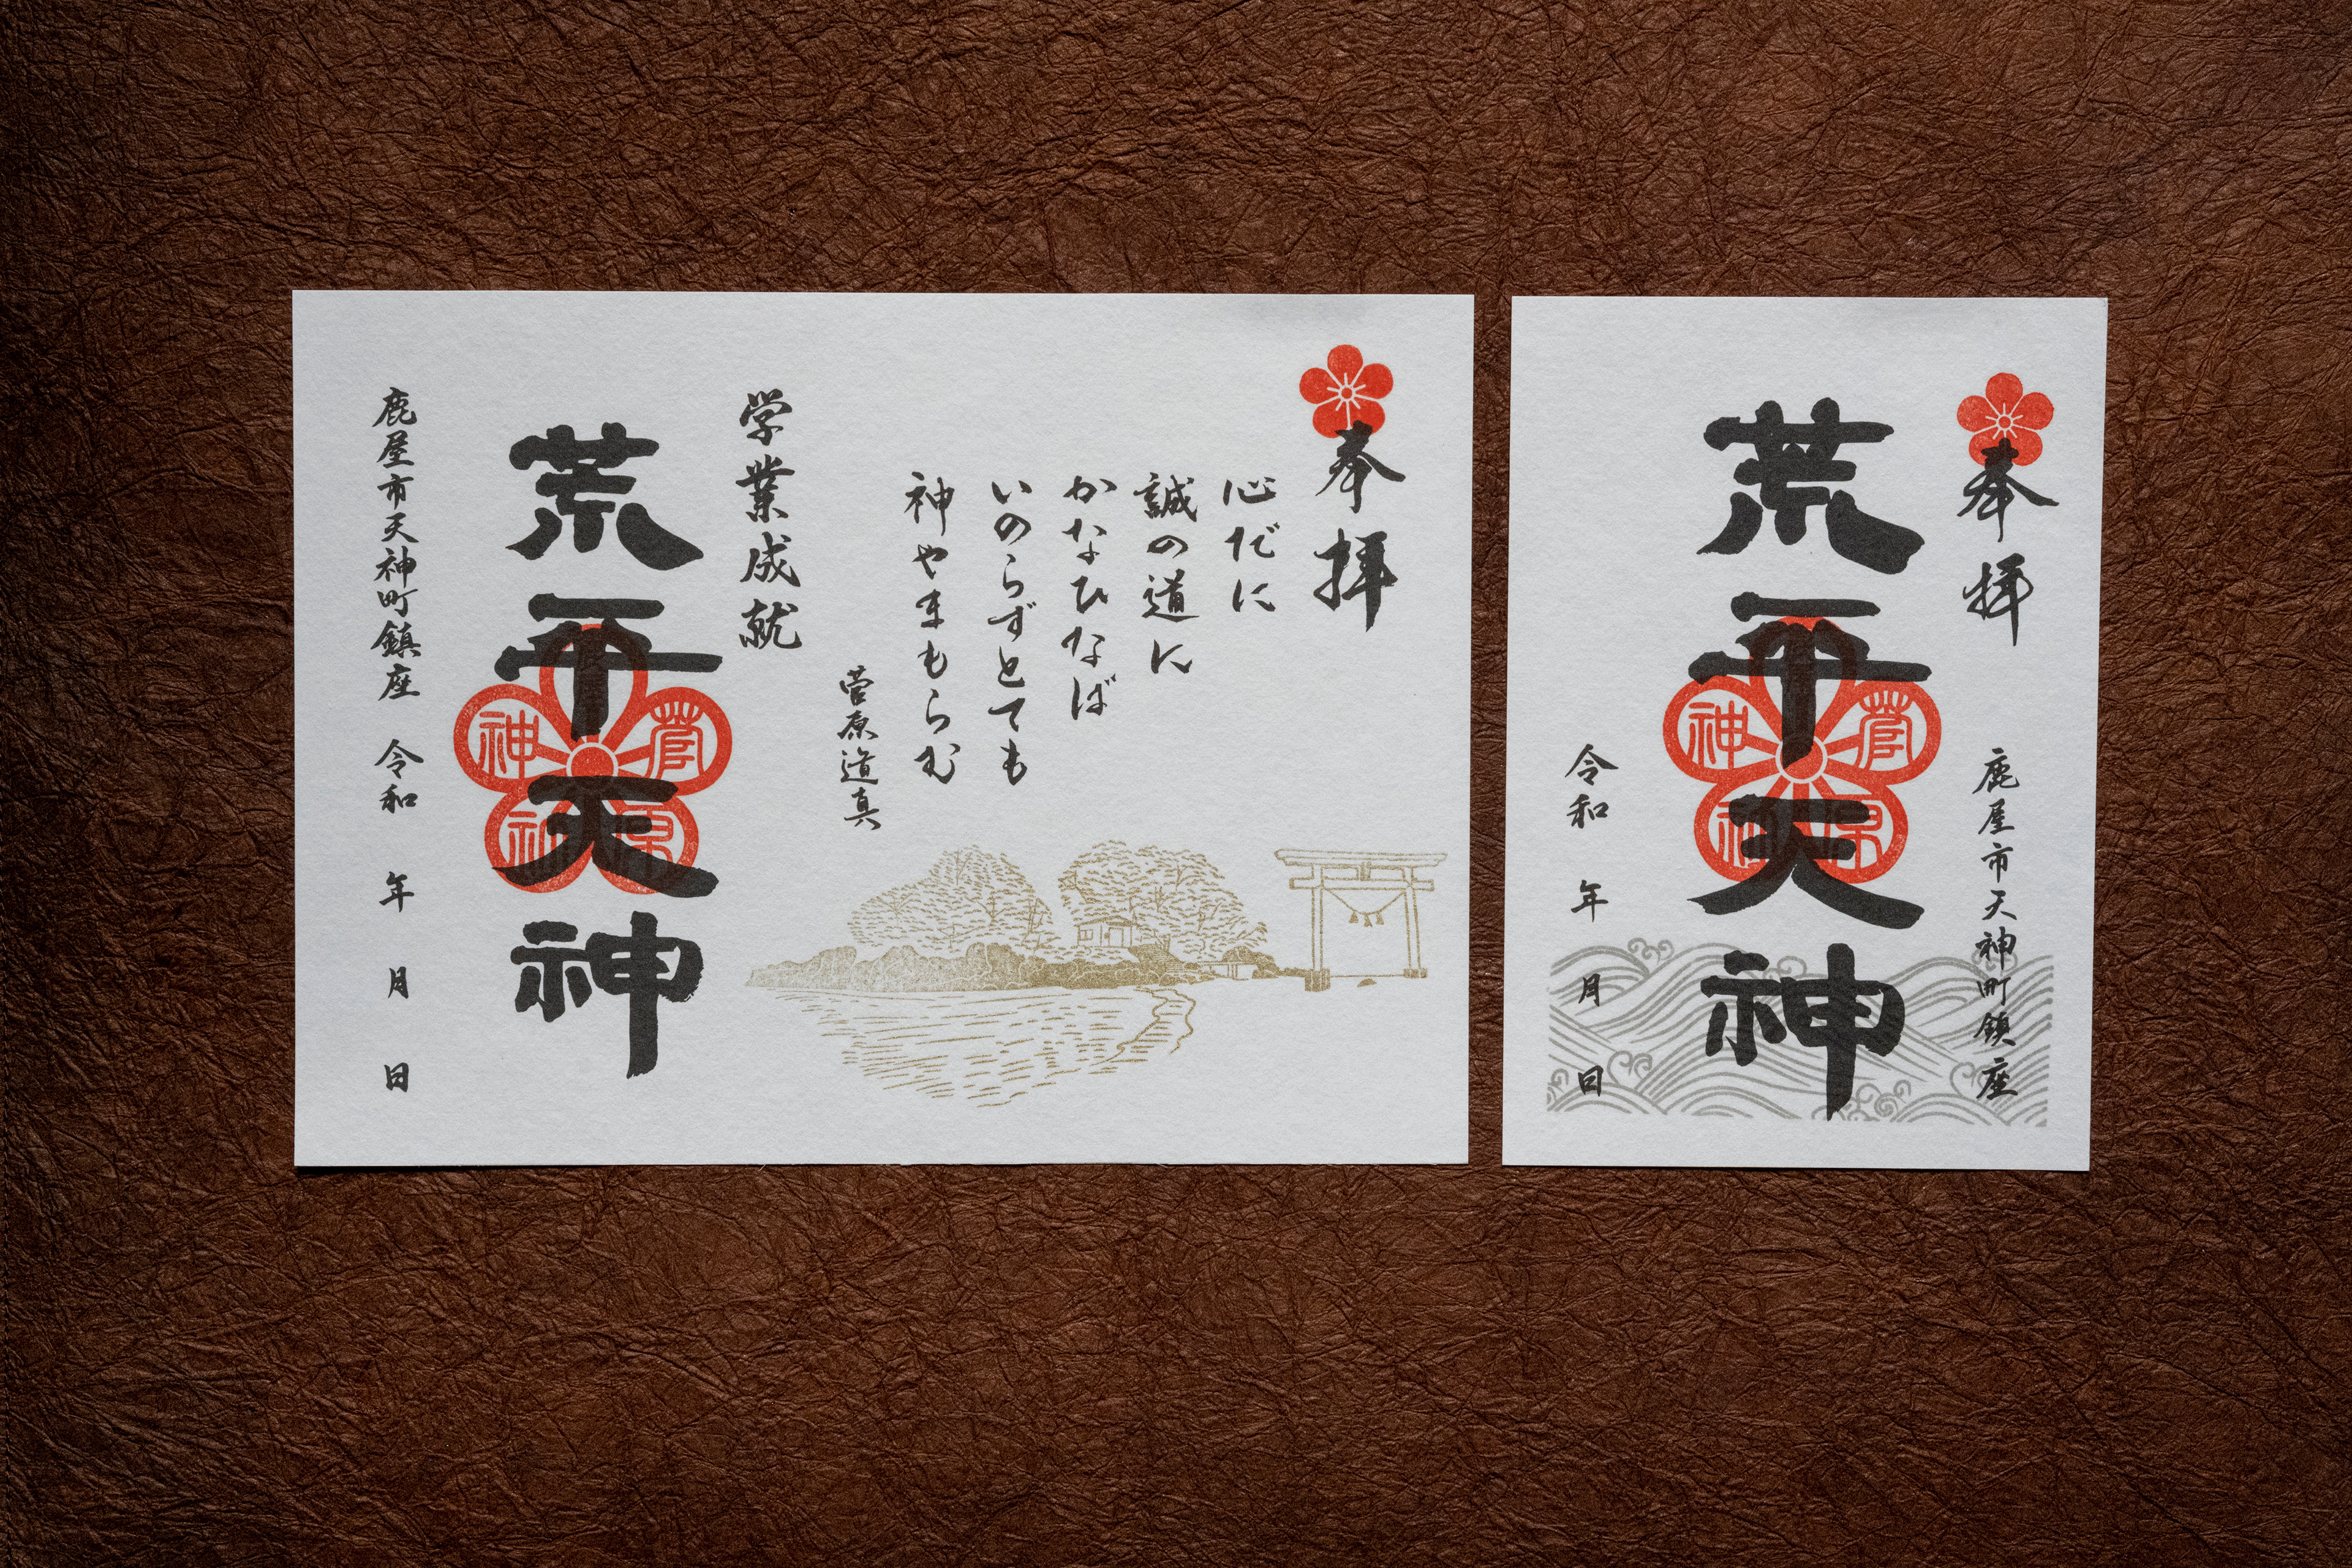 奉拝
心だに
誠の道に
かなひなば
いのらずとても
神やまもらむ
菅原道真
学業成就
荒平天神
鹿屋市天神町鎮座 令和 年 月 日
奉拝
鹿屋市天神町鎮座
荒平天神
令和 年 月 日